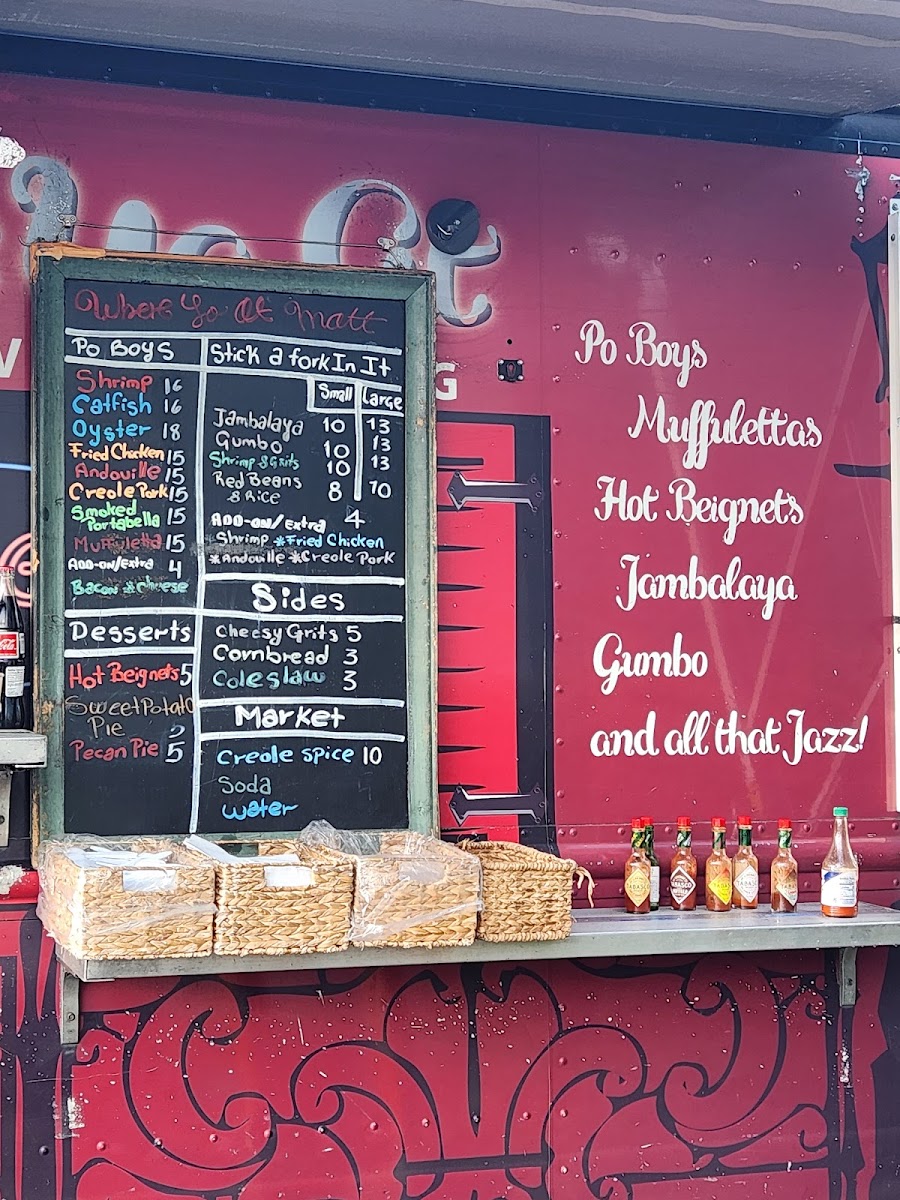 Where Ya At Matt
Po Boys
Shrimp 16
Catfish 16
Oyster 18
Fried Chicken 15
Andouille 15
Creole Pork 15
Smoked
Portabella 15
Muffuletta 15
ADD-ON/Extra 4
Bacon *Cheese
Desserts
Hot Beignets 5
*Sweet Potato
Pie 5
Pecan Pie 5
Stick a fork In It
Small Large
Jambalaya 10 13
Gumbo 10 13
Shrimp & Grits 10 13
Red Beans
& Rice 8 10
ADD-ON/Extra 4
Shrimp *Fried Chicken
*Andouille *Creole Pork
Sides
Cheesy Grits 5
Cornbread 3
Coleslaw 3
Market
Creole Spice 10
Soda
water
G
Po Boys
Muffulettas
Hot Beignets
Jambalaya
Gumbo
and all that Jazz!
TABASCO